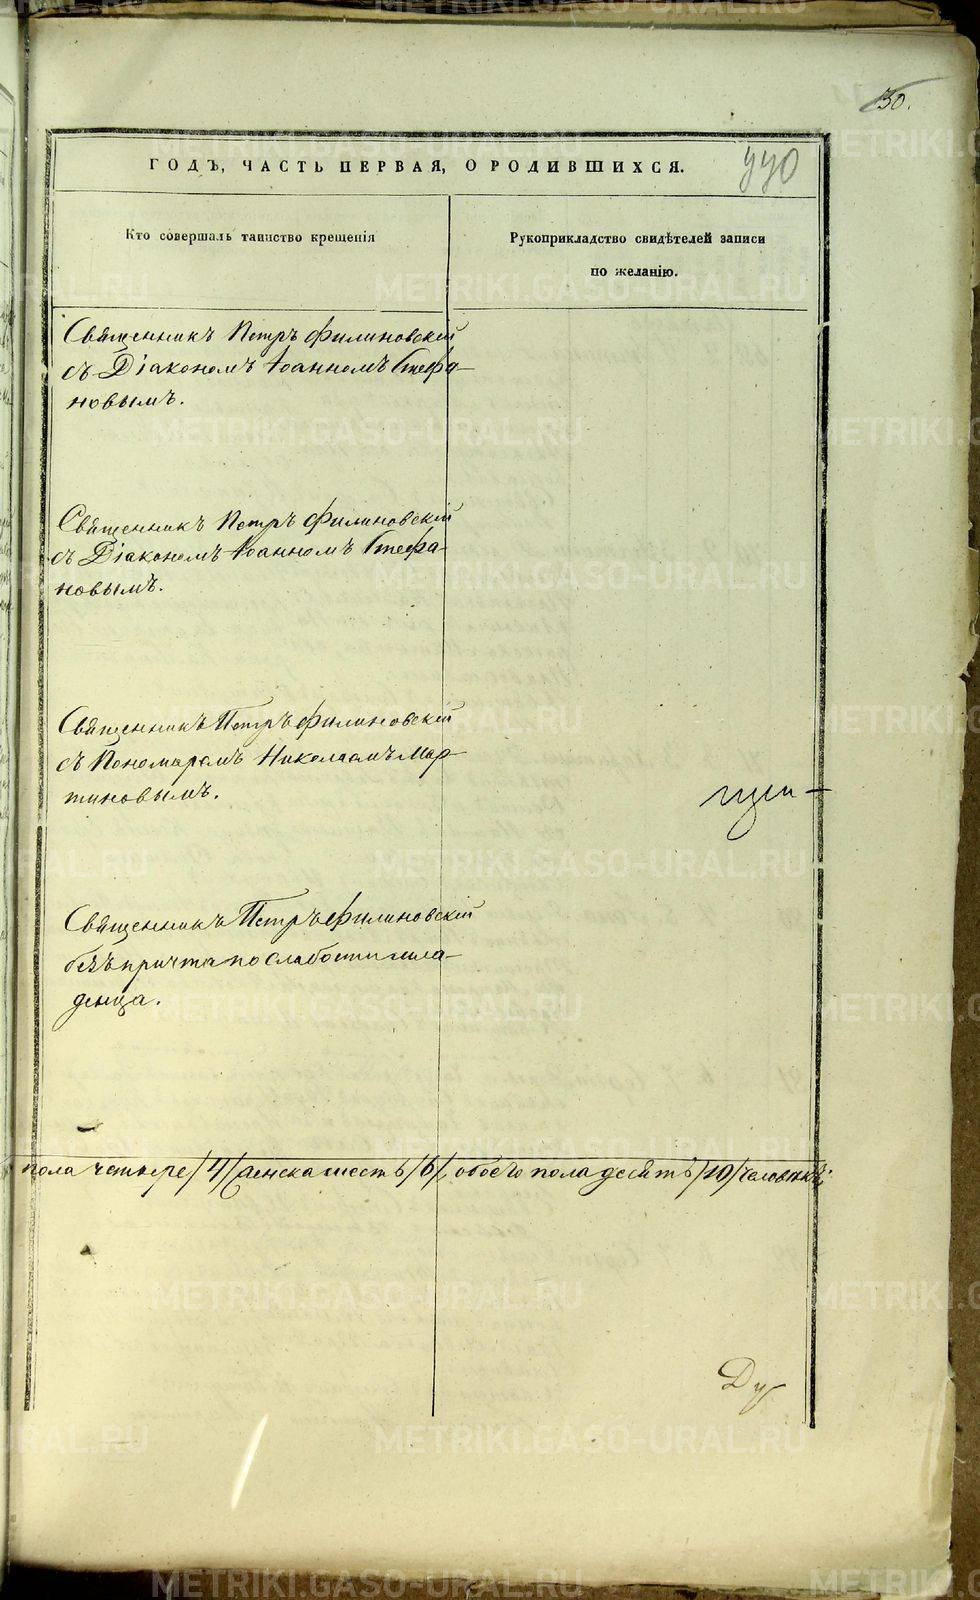 30.
ГОДЪ, ЧАСТЬ ПЕРВАЯ, О РОДИВШИХСЯ.
Кто совершалъ таинство крещенія
Рукоприкладство свидѣтелей записи
по желанію.
Священникъ Петръ Филиновскій
съ Діакономъ Іоанномъ Стефа-
новымъ.
Священникъ Петръ Филиновскій
съ Діакономъ Іоанномъ Стефа-
новымъ.
Священникъ Петръ Филиновскій
съ Пономаремъ Николаемъ Мар-
тиновымъ.
Священникъ Петръ Филиновскій
безъ причта по слабости мла-
денца.
пола четыре /4/ женска шесть /6/, обоего пола десять /10/ человѣкъ;
Ду
METRIKI.GASO-URAL.RU